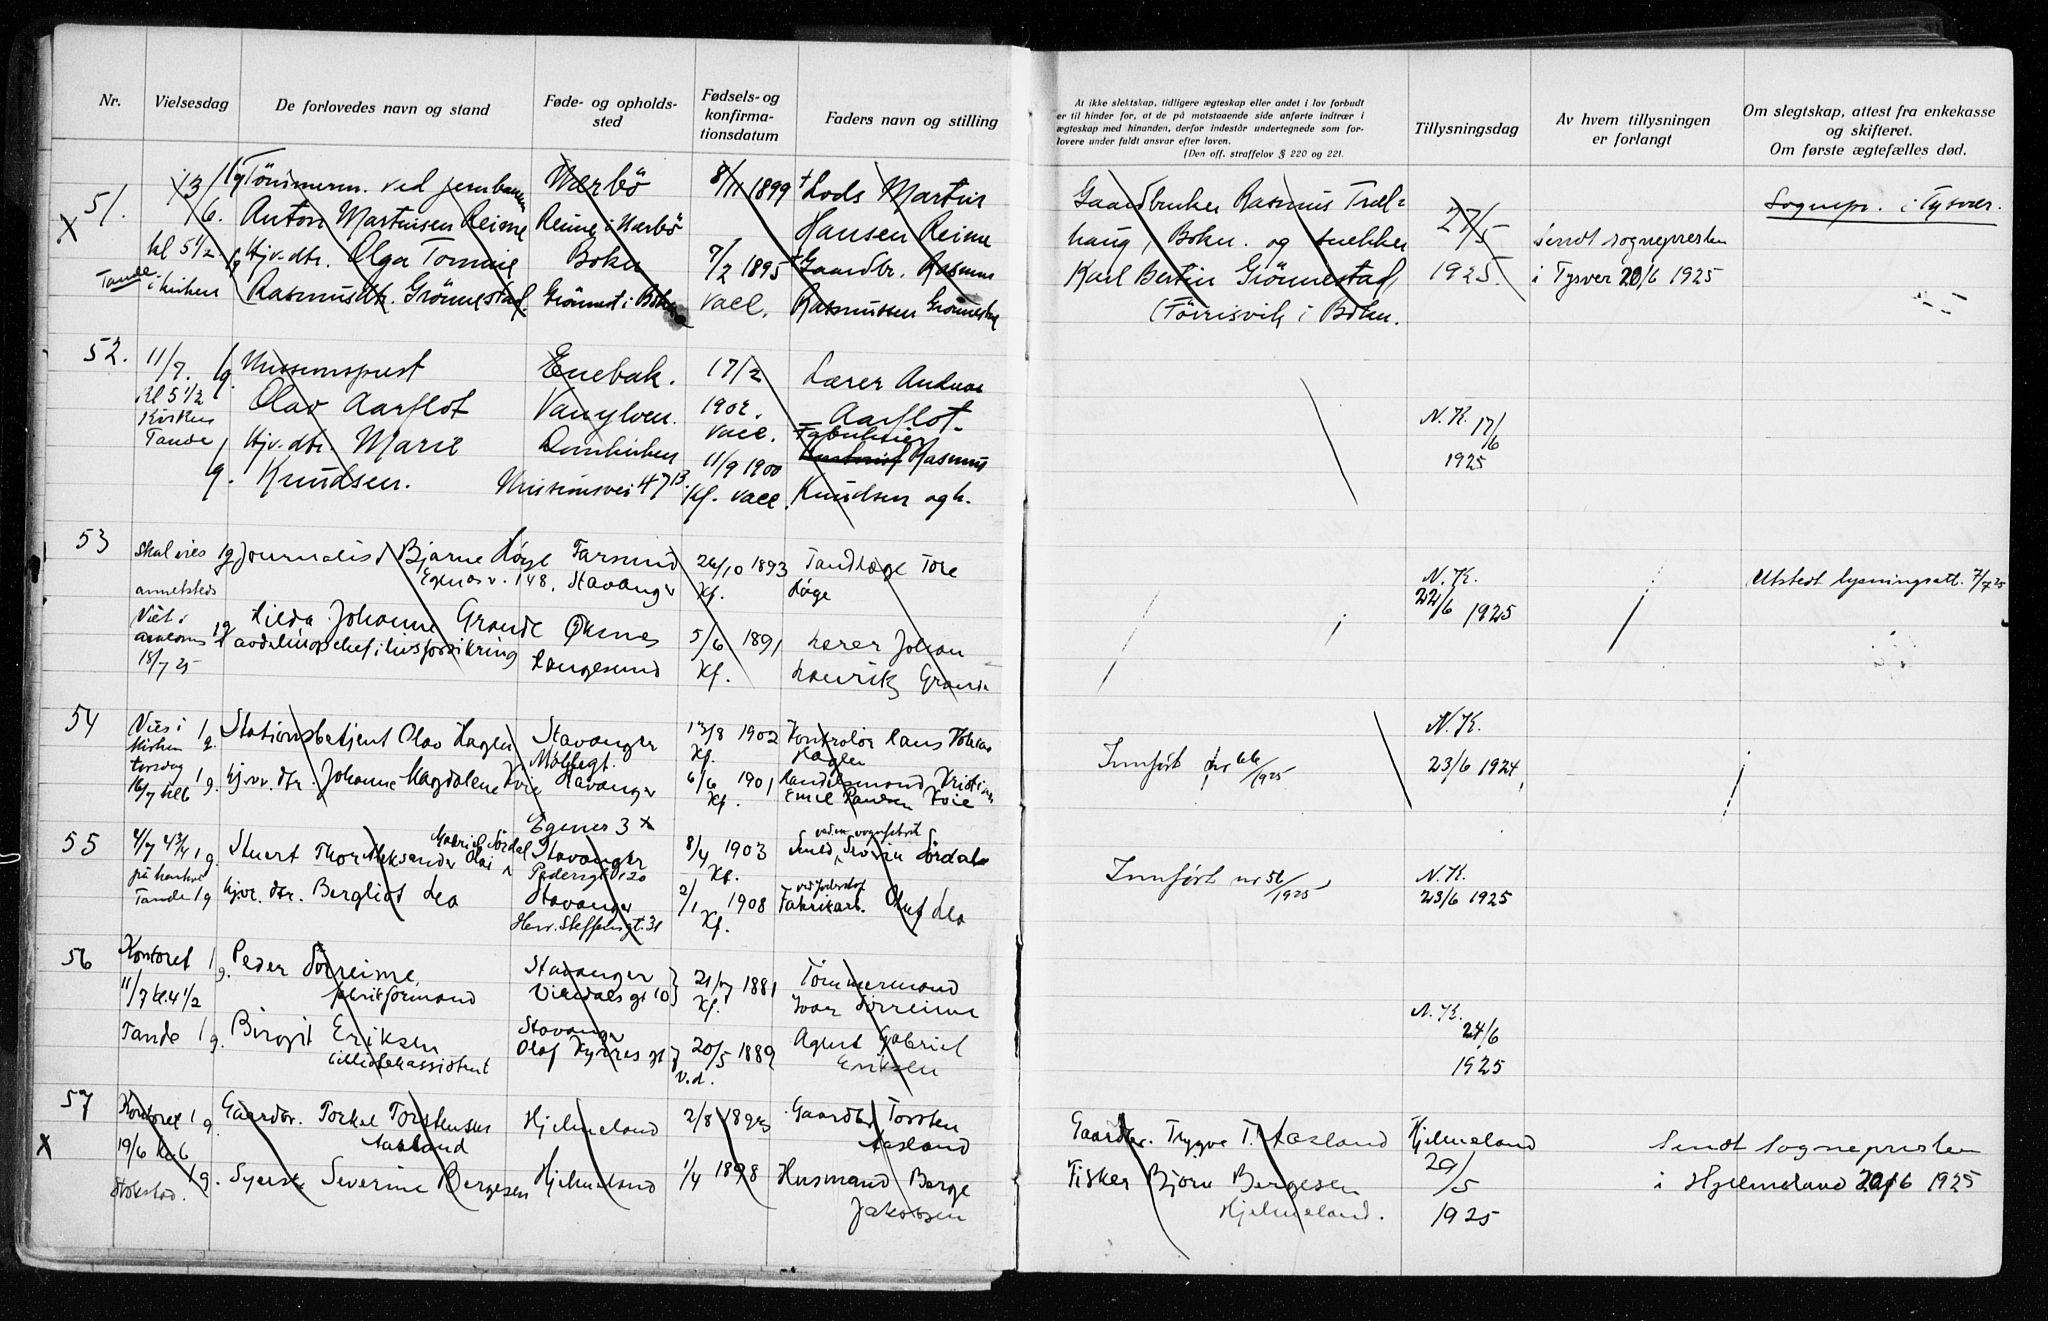 Nr.
Vielsesdag
De forlovedes navn og stand
Føde- og opholds-
sted
Fødsels- og
konfirma-
tionsdatum
Faders navn og stilling
At ikke slektskap, tidligere ægteskap eller andet i lov forbudt
er til hinder for, at de på motstaaende side anførte indtrær i
ægteskap med hinanden, derfor indestår undertegnede som for-
lovere under fuldt ansvar efter loven.
(Den off. straffelov § 220 og 221.
Tillysningsdag
Av hvem tillysningen
er forlangt
Om slegtskap, attest fra enkekasse
og skifteret.
Om første ægtefælles død.
51. 13/6. Tömmerm. ved jernbanen Nærbö 8/11 1899 † Lods Martin
Anton Martinsen Reime Reime i Nærbö Hansen Reime
kl 5 1/2. Hjv. dtr. Olga Tomine Bokn 7/2 1895 Gaardbr. Rasmus
Tande i kirken Rasmusdtr. Grönnestad. i Bokn vacc. Rasmussen
Gaardbruker Rasmus
haug, Bokn. og snekker
Karl Bertin Grönnestad,
i Bokn.
27/5
1925.
Sendt sognepresten
i Tysver 20/6 1925
Sognepr. i Tysvær.
52. 11/7. Missionsprest Enebak. 17/2 Lærer Andreas
Kl 5 1/2 Olav Aarflot Vanylven. 1902. Aarflot.
Kirken vacc.
Tande Hjv. dtr. Marie Domkirken 11/9 1900 Rasmus
Knudsen. Missionsvei 47 B. Kf. vacc. Knudsen og h.
N. K. 17/6
1925
53 Skal vies Journalist Bjarne Løge Farsund 26/10 1893 Tandlæge Tore
annetsteds v. 148, Stavanger Kf. Løge
Viet i Hilda Johanne Grande Øksnes 5/6 1891 Lærer Johan
avdelingschef i livsforsikring Langesund Kf. Henrik Grande
18/7 25
N. K.
22/6 1925
Utstedt lysningsatt. 7/7 25
54 Vies i 1 g. Stationsbetjent Olav Hagen Stavanger 13/8 1902 Kontrolør
kirken Kf.
torsdag 1 g. hj. vr. dtr. Johanne Magdalene Kvie Stavanger 6/6 1901 Kristian
16/7 kl 6 Kf. Emil Kvie
Innført nr 66/1925
N. K.
23/6 1924
55 4/7 4 3/4 1 g. Stuert Thor Aleksander Olai Gabriel Sørdal Stavanger 8/4 1903 Sørdal
Pedersgt 120 Kf.
Tande 1 g hjvr. dtr. Bergliot Lea Stavanger 2/1 1908 Fabrikarb. Oluf Lea
Henr. Steffensgt. 31 Kf.
Innført nr 56/1925
N. K.
23/6 1925
56 Kontoret 1 g. Peder Sørreime Stavanger 21/7 1881 Tømmermand
11/7 kl. 4 1/2 fabrikformand gt 10 Kf. Ivar Sørreime
Tande 1 g. Birgit Eriksen Stavanger Agent Gabriel
Olaf Kyrres gt 20/5 1889 Eriksen
v. d.
N. K.
24/6
1925
57 Kontoret 1 g. Gaardbr. Torkel Torstensen Hjelmeland 2/8 Gaardbr. Torsten
19/6 kl 6 Aasland Aasland
1 g. Syerske Severine Bergesen Hjelmeland 1/4 1898 Husmand Berge
Jakobsen
Gaardbr. Trygve T. Aasland
Fisker Bjørn Bergesen
Hjelmeland.
Hjelmeland
29/5
1925
Sendt Sognepresten
i Hjelmeland 20/6 1925